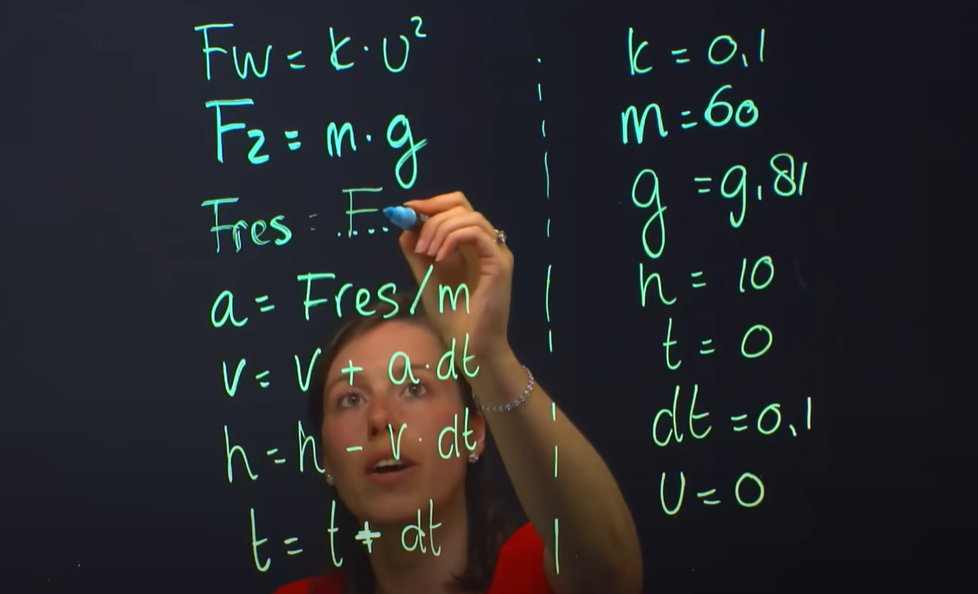 Fw = k · v²
Fz = m · g
Fres = F...
a = Fres/m
v = v + a · dt
h = h - v · dt
t = t + dt
k = 0,1
m = 60
g = 9,81
h = 10
t = 0
dt = 0,1
v = 0